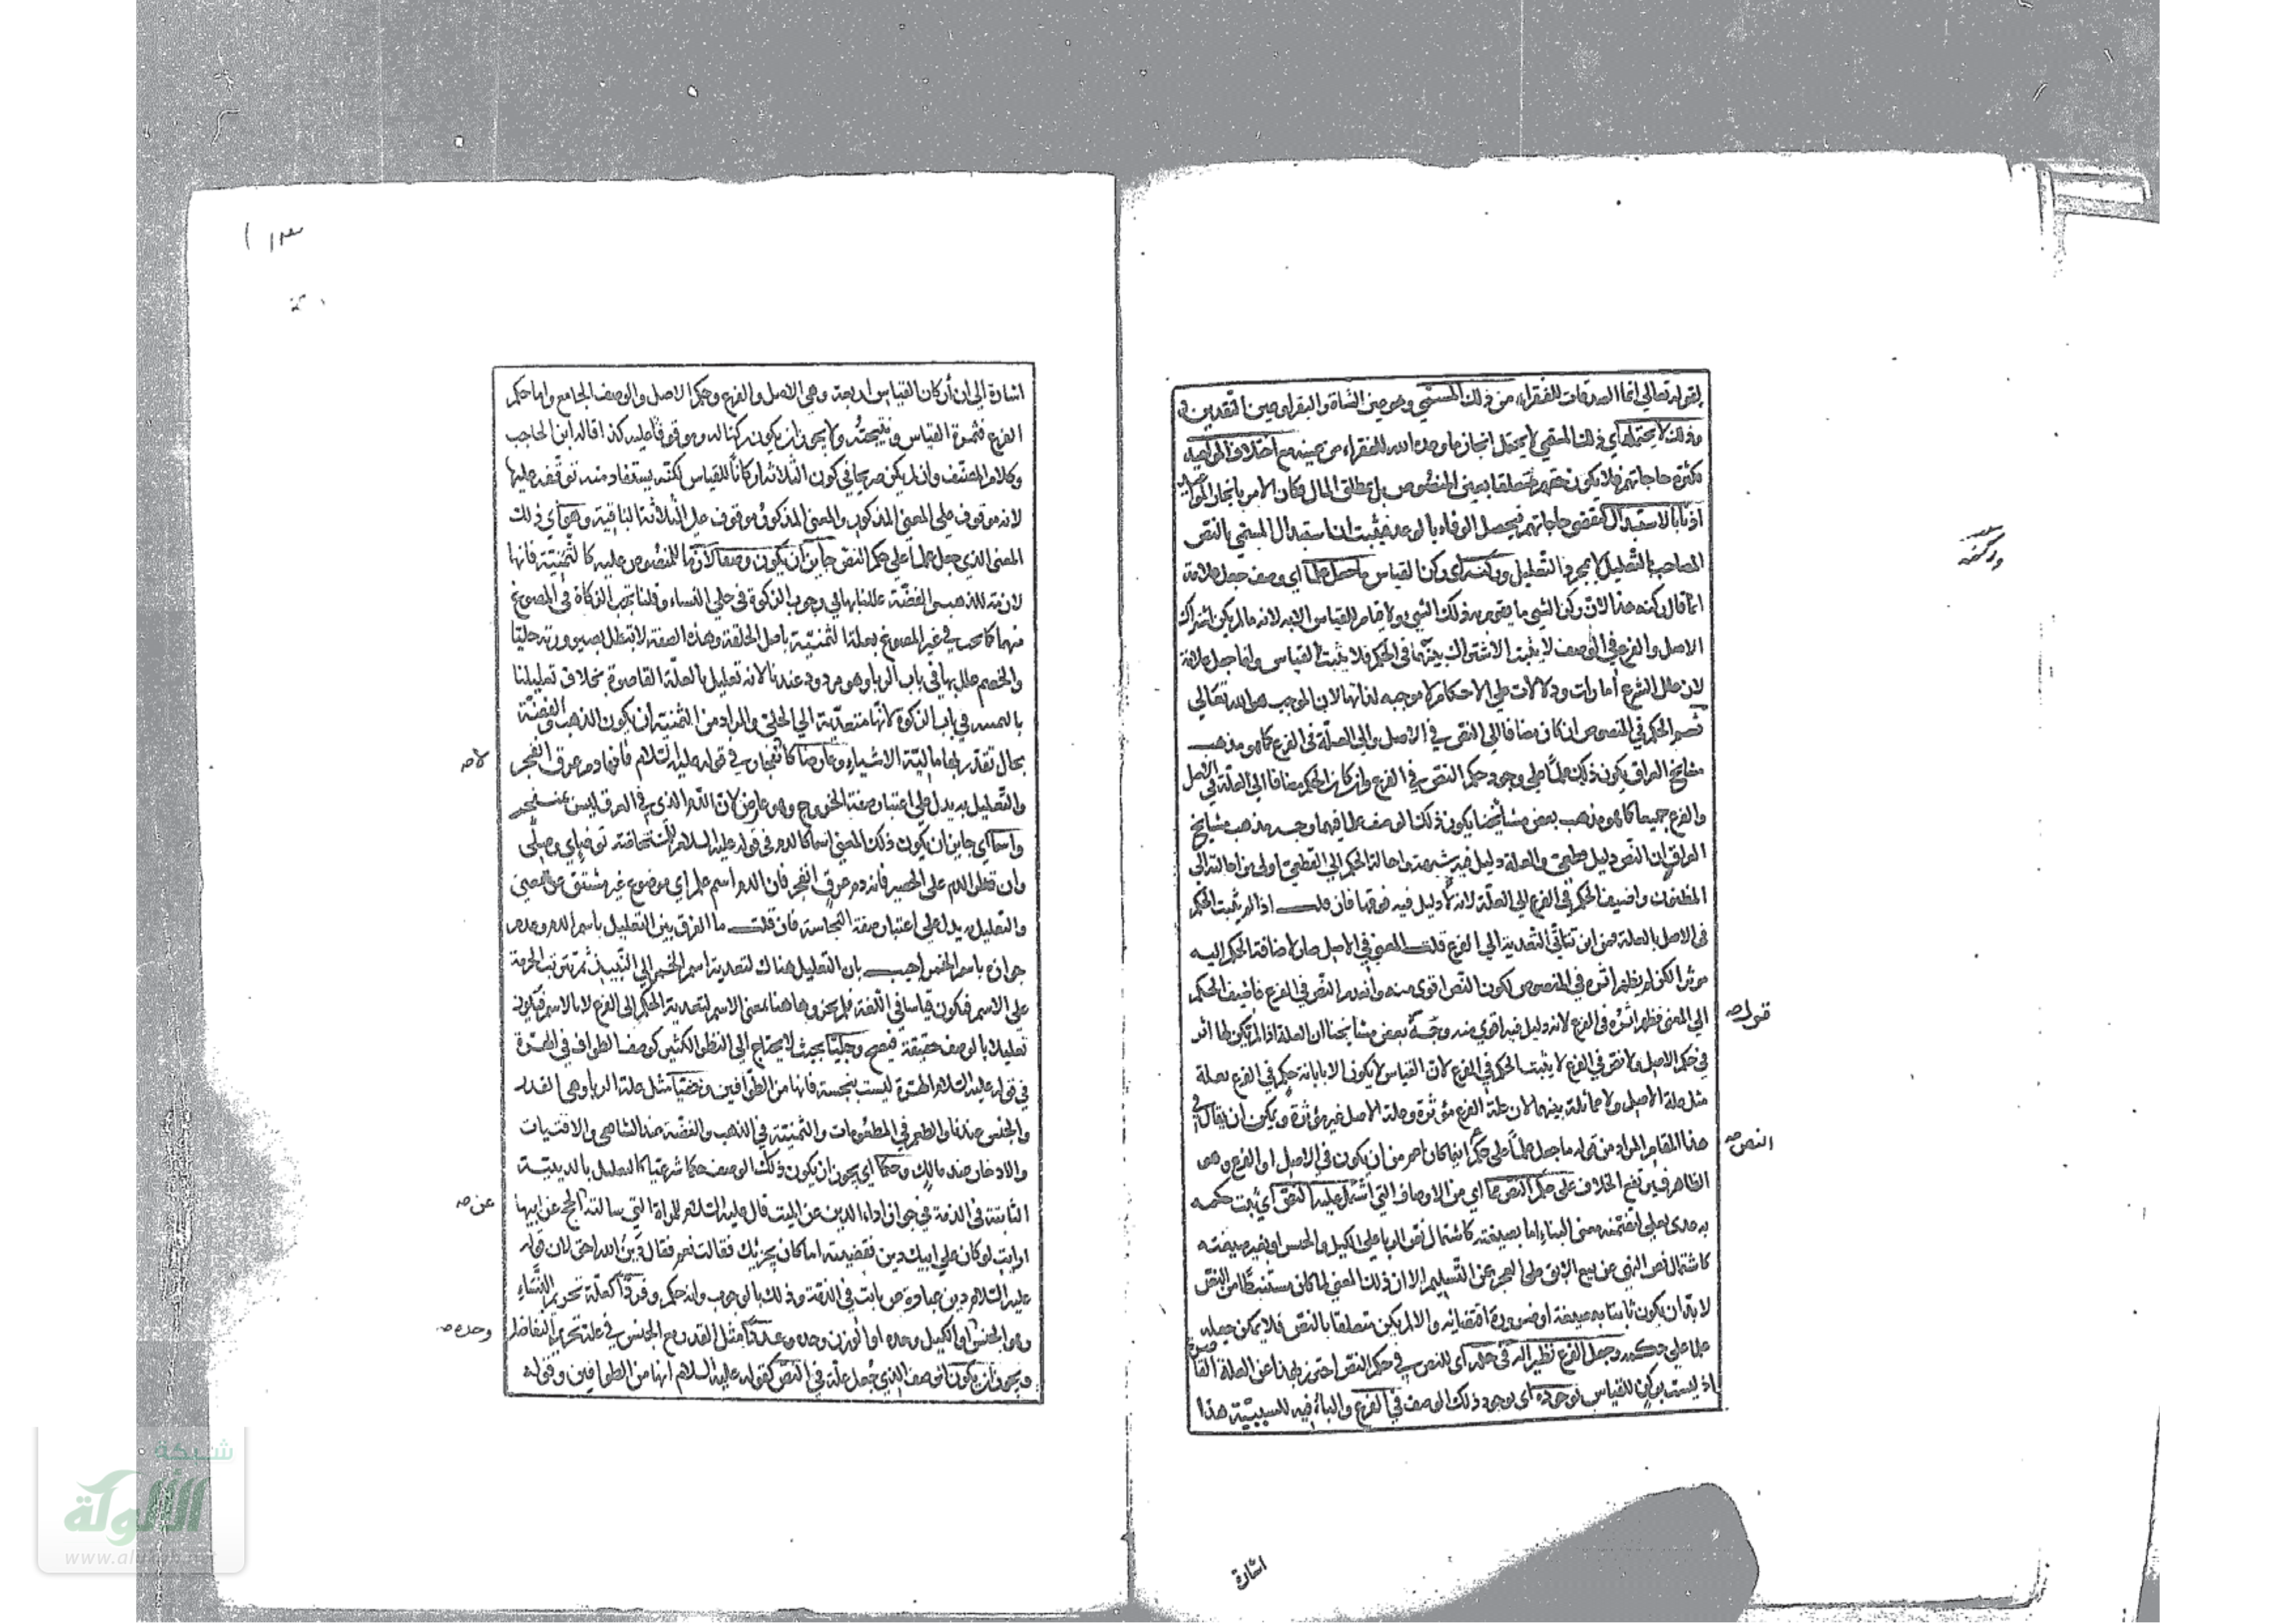 لقوله تعالى انما الصدقات للفقراء من ذلك المسمى وهو عين الشاة والبقر او عين النقدين في
وذلك لا يحتمله اي ذلك المسمى لا يحتمل انجاز ما وعده الله للفقراء من عينه مع اختلاف المواعيد
لكثرة حاجاتهم فلا يكون حقهم متعلقا بعين المنصوص بل بمطلق المال فكان الامر بانجاز المواعيد
اذنا بالاستبدال لتقضى حاجاتهم فيحصل الوفاء بالوعد فثبت ان استبدال المسمى بالنص
المصاحب بالتعليل لا بمجرد التعليل وركنه اي ركن القياس ما جعل علما اي وصف جعل علامة
انما قال ركنه هذا لان ركن الشيء ما يقوم به ذلك الشيء ولا قيام للقياس الا به لانه ما لم يكن اشتراك
الاصل والفرع في الوصف لا يثبت الاشتراك بينهما في الحكم فلا يثبت القياس وانما جعل علامة
لان علل الشرع أمارات ودلالات على الاحكام لا موجبه لذاتها لان الموجب هو الله تعالى
ثم الحكم في المنصوص ان كان مضافا الى النص في الاصل والى العلة في الفرع كما هو مذهب
مشايخ العراق يكون ذلك علما على وجود حكم النص في الفرع وان كان الحكم مضافا الى العلة في الاصل
والفرع جميعا كما هو مذهب بعض مشايخنا يكون ذلك الوصف علما فيهما وجه مذهب مشايخ
العراق ان النص دليل قطعي والعلة دليل فيه شبهة واحالة الحكم الى القطعي اولى من احالته الى
المظنون واضيف الحكم في الفرع الى العلة لانه لا دليل فيه فوقها فان قلت اذا لم يثبت الحكم
في الاصل بالعلة فمن اين تتأتى التعدية الى الفرع قلت المعنى في الاصل صار لاضافة الحكم اليه
موثرا لكن لم يظهر اثره في المنصوص لكون النص اقوى منه وانعدم النص في الفرع فاضيف الحكم
الى المعنى فظهر اثره في الفرع لانه دليل فيه اقوى منه وجه بعض مشايخنا ان العلة اذا لم يكن لها اثر
في حكم الاصل ولا نص في الفرع لا يثبت الحكم في الفرع لان القياس لا يكون الا بابانة حكم في الفرع بعلة
مثل علة الاصل ولا مماثلة بينهما لان علة الفرع مؤثرة وعلة الاصل غير مؤثرة ويمكن ان يقال في
هذا المقام المراد من قوله ما جعل علما على حكم اينما كان اعم من ان يكون في الاصل او الفرع وهو
الظاهر فيرتفع الخلاف على حكم النص مما اي من الاوصاف التي اشتمل عليه النص اي ثبت حكمه
به عدى بعلى لتضمنه معنى البناء اما بصيغته كاشتمال نص الربا على الكيل والجنس او بغير صيغته
كاشتمال نص النهي عن بيع الابق على العجز عن التسليم الا ان ذلك المعنى لما كان مستنبطا من النص
لا بد ان يكون ثابتا به صيغة او ضرورة اقتضائه والا لم يكن متعلقا بالنص فلا يمكن جعله
علما على حكمه وجعل الفرع نظيرا له في حكمه اي للنص في حكم النص احترز بهذا عن العلة القاصرة
اذ ليست بركن للقياس بوجوده اي بوجود ذلك الوصف في الفرع والباء فيه للسببية هذا
قوله صح
النص صح
وركنه
اشارة
اشارة الى ان أركان القياس اربعة وهي الاصل والفرع وحكم الاصل والوصف الجامع واما حكم
الفرع فثمرة القياس ونتيجته ولا يجوز ان يكون ركنا له وموقوفا عليه كذا قاله ابن الحاجب
وكلام المصنف وان لم يكن صريحا في كون الثلاثة اركانا للقياس لكنه يستفاد منه توقفه عليها
لانه موقوف على المعنى المذكور والمعنى المذكور موقوف على الثلاثة الباقية وهو اي ذلك
المعنى الذي جعل علما على حكم النص جاز ان يكون وصفا لازما للمنصوص عليه كالثمنية فانها
لازمة للذهب والفضة عللنا بها في وجوب الزكوة في حلي النساء وقلنا تجب الزكاة في المصوغ
منهما كما تجب في غير المصوغ بعلة الثمنية باصل الخلقة وهذه الصفة لا تبطل بصيرورته حليا
والخصم علل بها في باب الربا وهو مردود عندنا لانه تعليل بالعلة القاصرة بخلاف تعليلنا
في باب الزكوة لانها متعدية الى الحلي والمراد من الثمنية ان يكون الذهب والفضة
بحال تقدر بها مالية الاشياء وعارضا كانفجار في قوله عليه السلام فانها دم عرق انفجر
والتعليل به يدل على اعتبار صفة الخروج وهو عارض لان الدم الذي في العرق ليس عنه منفجر
واسما اي جاز ان يكون ذلك المعنى اسما كالدم في قوله عليه السلام للمستحاضة توضاي وصلي
وان قطر الدم على الحصير فانه دم عرق انفجر فان الدم اسم علم اي موضوع غير مشتق عن معنى
والتعليل به يدل على اعتبار صفة النجاسة فان قلت ما الفرق بين التعليل باسم الدم وعدم
جوازه باسم الخمر اجيب بان التعليل هناك لتعدية اسم الخمر الى النبيذ ثم ترتب الحرمة
على الاسم فيكون قياسا في اللغة فلم يجز وها هنا بمعنى الاسم لتعدية الحكم الى الفرع لا بالاسم فيكون
تعليلا بالوصف حقيقة فيصح وجليا بحيث لا يحتاج الى النظر الكثير كوصف الطواف في الهرة
في قوله عليه السلام الهرة ليست بنجسة فانها من الطوافين وخفيا مثل علة الربا وهي القدر
والجنس عندنا والطعم في المطعومات والثمنية في الذهب والفضة عند الشافعي والاقتيات
والادخار عند مالك وحكما اي يجوز ان يكون ذلك الوصف حكما شرعيا كالتعليل بالدينية
الثابتة في الذمة في جواز اداء الدين عن الميت قال عليه السلام للمراة التي سالته الحج عن ابيها
ارايت لو كان على ابيك دين فقضيته اما كان يجزئك فقالت نعم فقال دين الله احق لان قوله
عليه السلام دين عبارة عن ثابت في الذمة وذلك بالوجوب وانه حكم وفردا كعلة تحريم النساء
وهو الجنس او الكيل وحده او الوزن وحده وعددا مثل القدر مع الجنس في علة تحريم التفاضل
ويجوز ان يكون الوصف الذي جعل علة في النص كقوله عليه السلام انها من الطوافين وقوله
لا صح
عن صح
وحده صح
شبكة
الألوكة
www.alukah.net